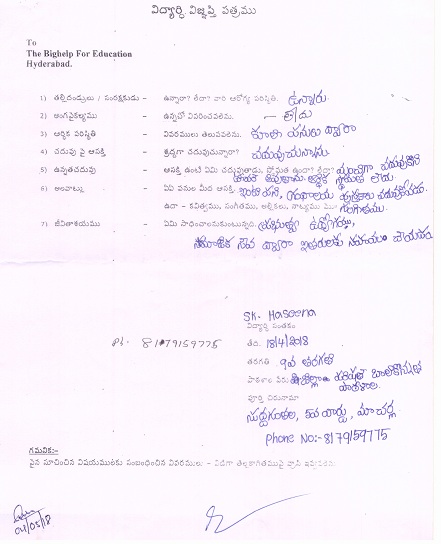 విద్యార్థి విజ్ఞప్తి పత్రము
To
The Bighelp For Education
Hyderabad.
1) తల్లిదండ్రులు / సంరక్షకుడు - ఉన్నారా? లేదా? వారి ఆరోగ్య పరిస్థితి. ఉన్నారు.
2) అంగవైకల్యము - ఉన్నచో వివరించవలెను. - లేదు
3) ఆర్థిక పరిస్థితి - వివరములు తెలుపవలెను. కూలి పనులు ద్వారా
4) చదువు పై ఆసక్తి - శ్రద్ధగా చదువుచున్నారా? చదువుచున్నాను
5) ఉన్నతచదువు - ఆసక్తి ఉంటే ఏమి చదువుతారు, స్తోమత ఉందా? లేదా?
6) అలవాట్లు - ఏఏ పనుల మీద ఆసక్తి.
ఉదా - కవిత్వము, సంగీతము, అల్లికలు, నాట్యము సంగీతము.
7) జీవితాశయము - ఏమి సాధించాలనుకుంటున్నారు. ఉద్యోగము,
సామాజిక సేవ ద్వారా ఇతరులకు సహాయం చేయడం
SK. Haseena
విద్యార్థి సంతకం
Ph: 8179159775
తేది. 18/4/2018
తరగతి 9వ తరగతి
పాఠశాల పేరు జిల్లా పరిషత్ బాలికోన్నత
పాఠశాల.
పూర్తి చిరునామా
5వ వార్డు, మాచర్ల
Phone No:- 8179159775
గమనిక:-
పైన సూచించిన విషయములకు సంబంధించిన వివరములు - విడిగా తెల్లకాగితముపై వ్రాసి ఇవ్వవలెను
04/05/18